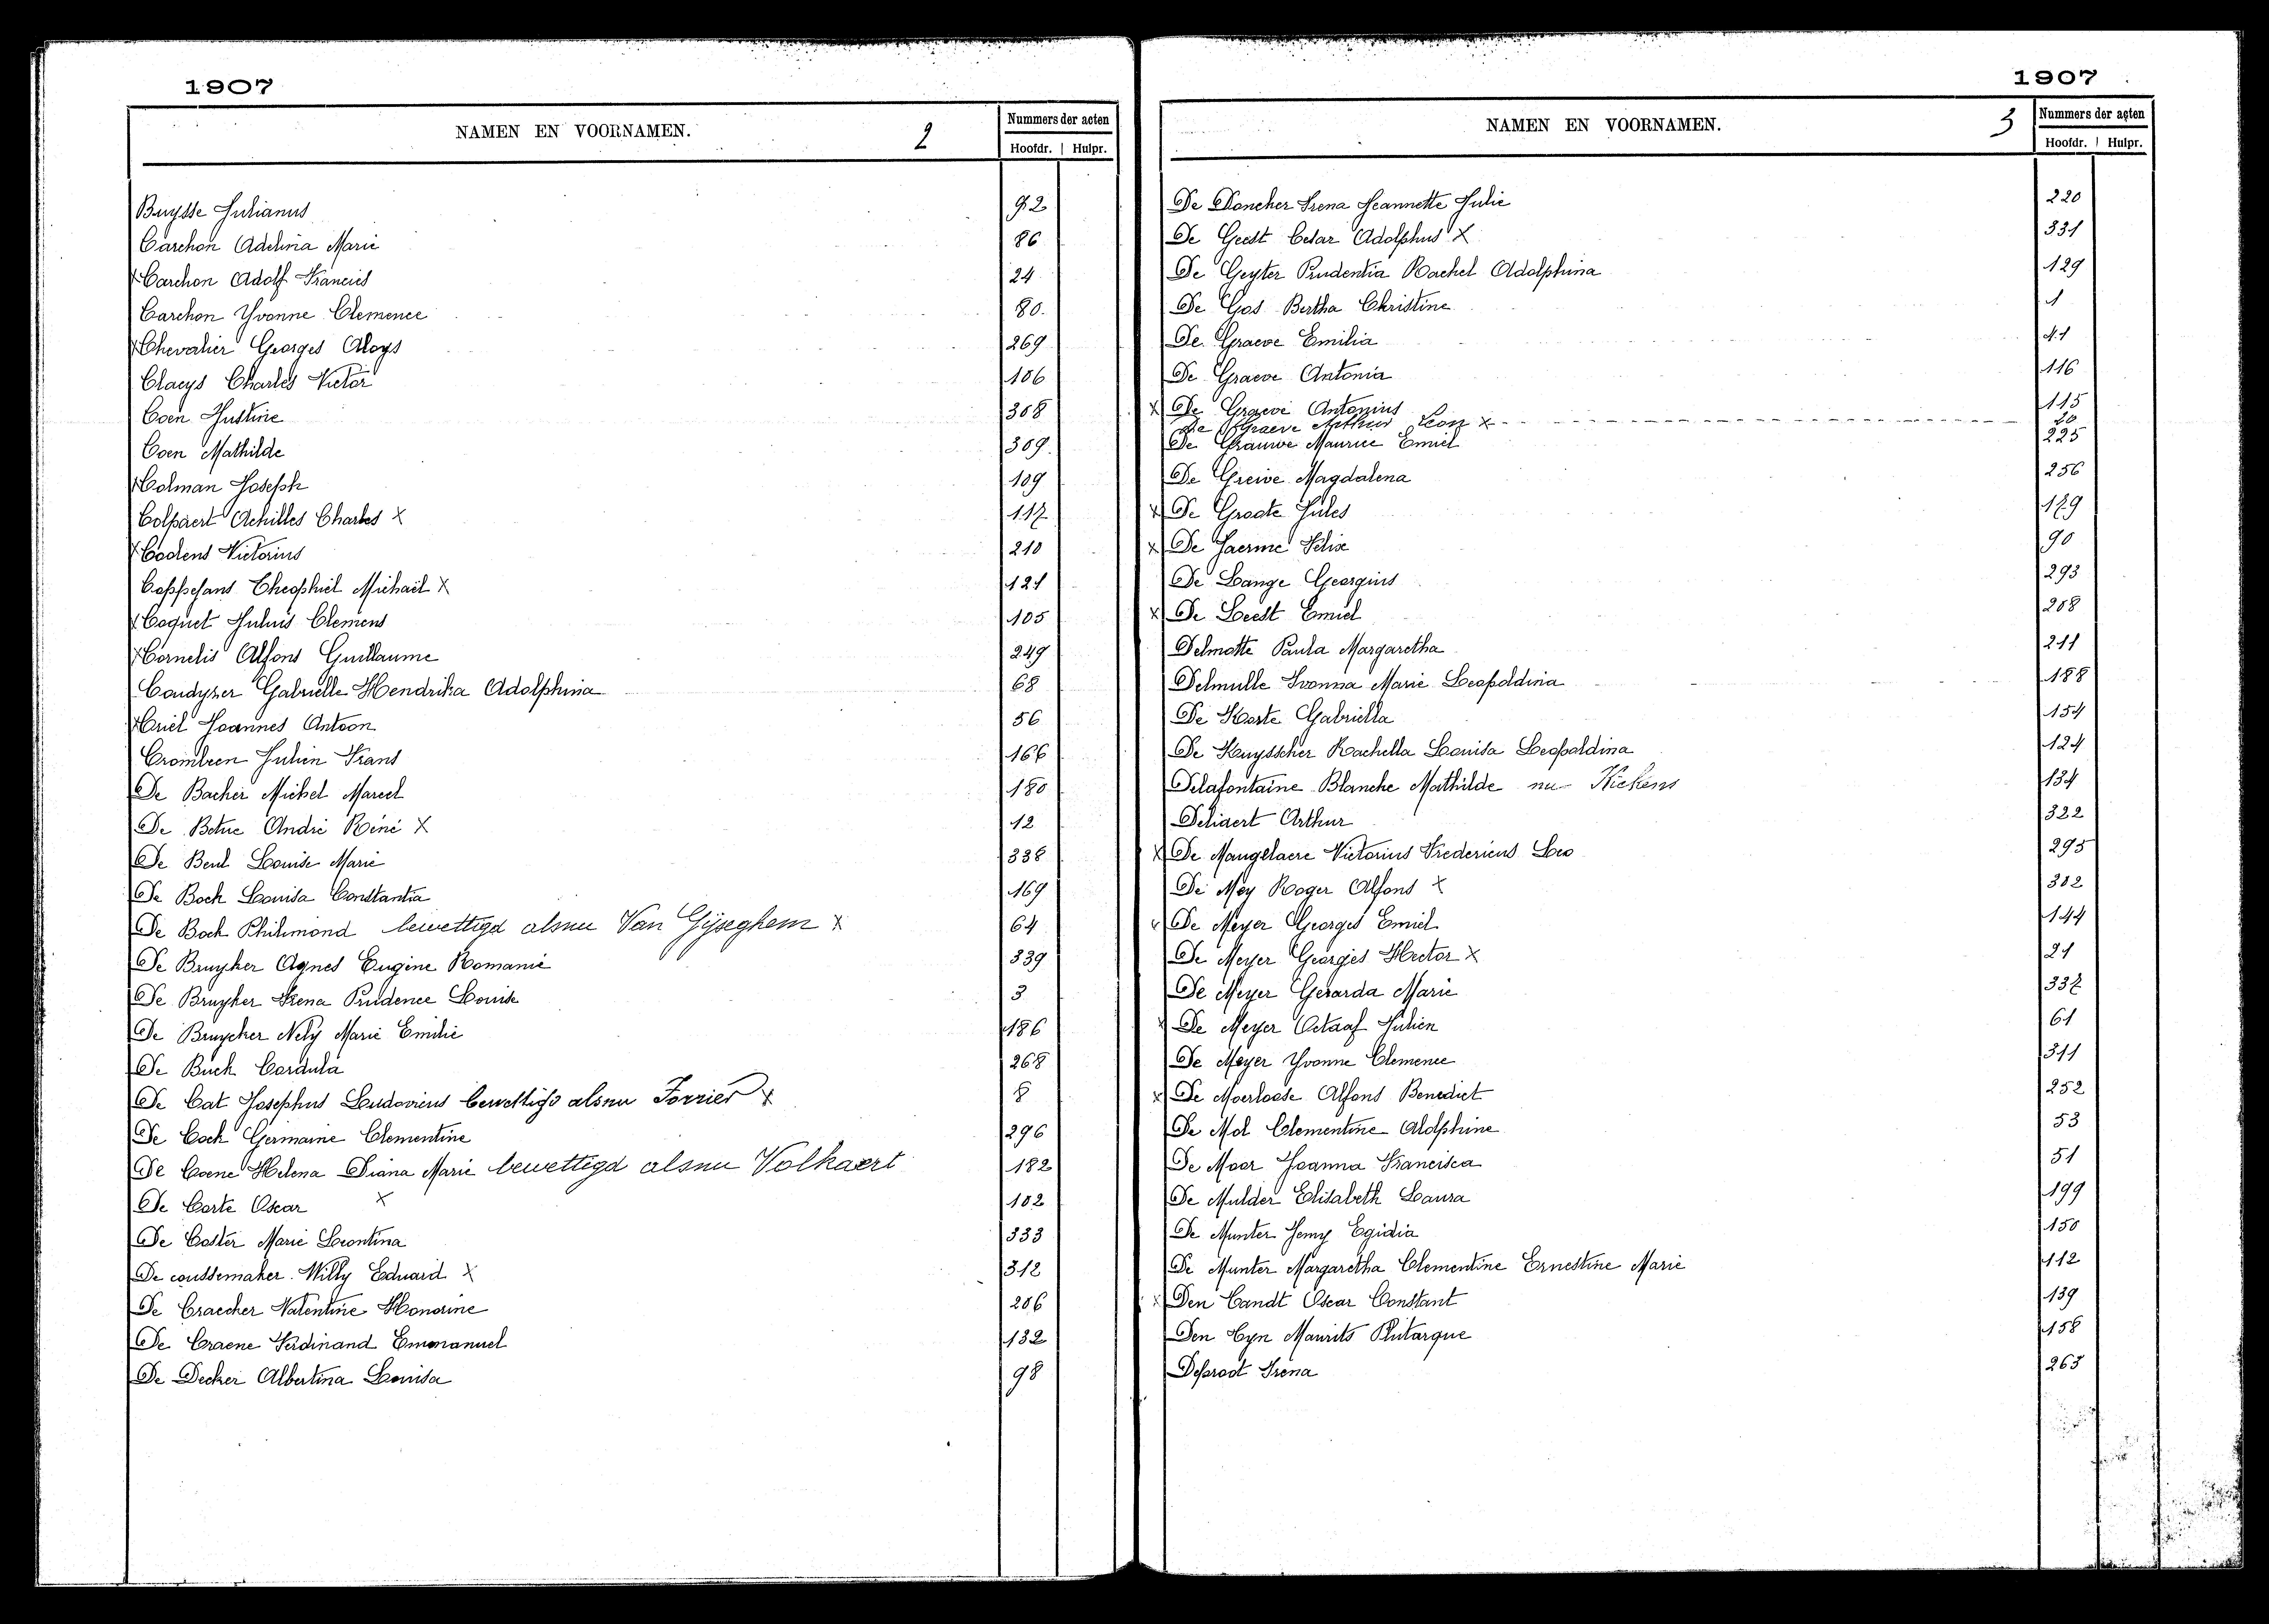 1907
NAMEN EN VOORNAMEN. 2 Nummers der acten
Hoofdr. Hulpr.
Buysse Julianus 92
Carchon Adelina Marie 86
x Carchon Adolf Francies 24
Carchon Yvonne Clemence 80.
x Chevalier Georges Aloys 269
Claeys Charles Victor 106
Coen Justine 308
Coen Mathilde 309
x Colman Joseph 109
Colpaert Achilles Charles x 117
x Coolens Victorius 210
Coppejans Theophiel Michaël x 121
x Coquet Julius Clemens 105
x Cornelis Alfons Guillaume 249
Coudyzer Gabrielle Hendrika Adolphina 68
x Criel Joannes Antoon 56
Crombeen Julien Frans 166
De Backer Michel Marcel 180
De Betue André Réné x 12
De Beul Louise Marie 338
De Bock Louisa Constantia 169
De Bock Philimond bewettigd alsnu Van Gijseghem x 64
De Bruyker Agnes Eugine Romanie 339
De Bruyker Irena Prudence Louise 3
De Bruycker Nely Marie Emilie 186
De Buck Cordula 268
De Cat Josephus Ludovicus bewettigd alsnu x 8
De Cock Germaine Clementine 296
De Coene Helena Diana Marie bewettigd alsnu Volkaert 182
De Corte Oscar x 102
De Coster Marie Leontina 333
De coussemaker Willy Eduard x 312
De Craecker Valentine Honorine 206
De Craene Ferdinand Emmanuel 132
De Decker Albertina Louisa 98
1907
NAMEN EN VOORNAMEN. 3 Nummers der acten
Hoofdr. Hulpr.
De Doncker Irena Jeannette Julie 220
De Geest Cesar Adolphus x 331
De Geyter Prudentia Rachel Adolphina 129
De Gos Bertha Christine 1
De Graeve Emilia 41
De Graeve Antonia 116
x De Graeve Antonius 115
De Graeve Arthur Leon x 20
De Grauwe Maurice Emiel 225
De Greive Magdalena 256
x De Groote Jules 179
x De Jaerme Felix 90
De Lange Georgius 293
x De Leest Emiel 208
Delmotte Paula Margaretha 211
Delmulle Ivonna Marie Leopoldina 188
De Korte Gabriella 154
De Kuysscher Rachella Louisa Leopoldina 124
Delafontaine Blanche Mathilde nu Kiekens 134
Deliaert Arthur 322
x De Maugelaere Victorius Fredericus Leo 295
De Mey Roger Alfons x 302
x De Meyer Georges Emiel 144
De Meyer Georges Hector x 21
De Meyer Gerarda Marie 337
x De Meyer Octaaf Julien 61
De Meyer Yvonne Clemence 311
x De Moerloose Alfons Benedict 252
De Mol Clementine Alolphine 53
De Moor Joanna Francisca 51
De Mulder Elisabeth Laura 199
De Munter Jemy Egidia 150
De Munter Margaretha Clementine Ernestine Marie 112
x Den Candt Oscar Constant 139
Den Cyn Maurits Plutarque 158
Deproot Irena 265